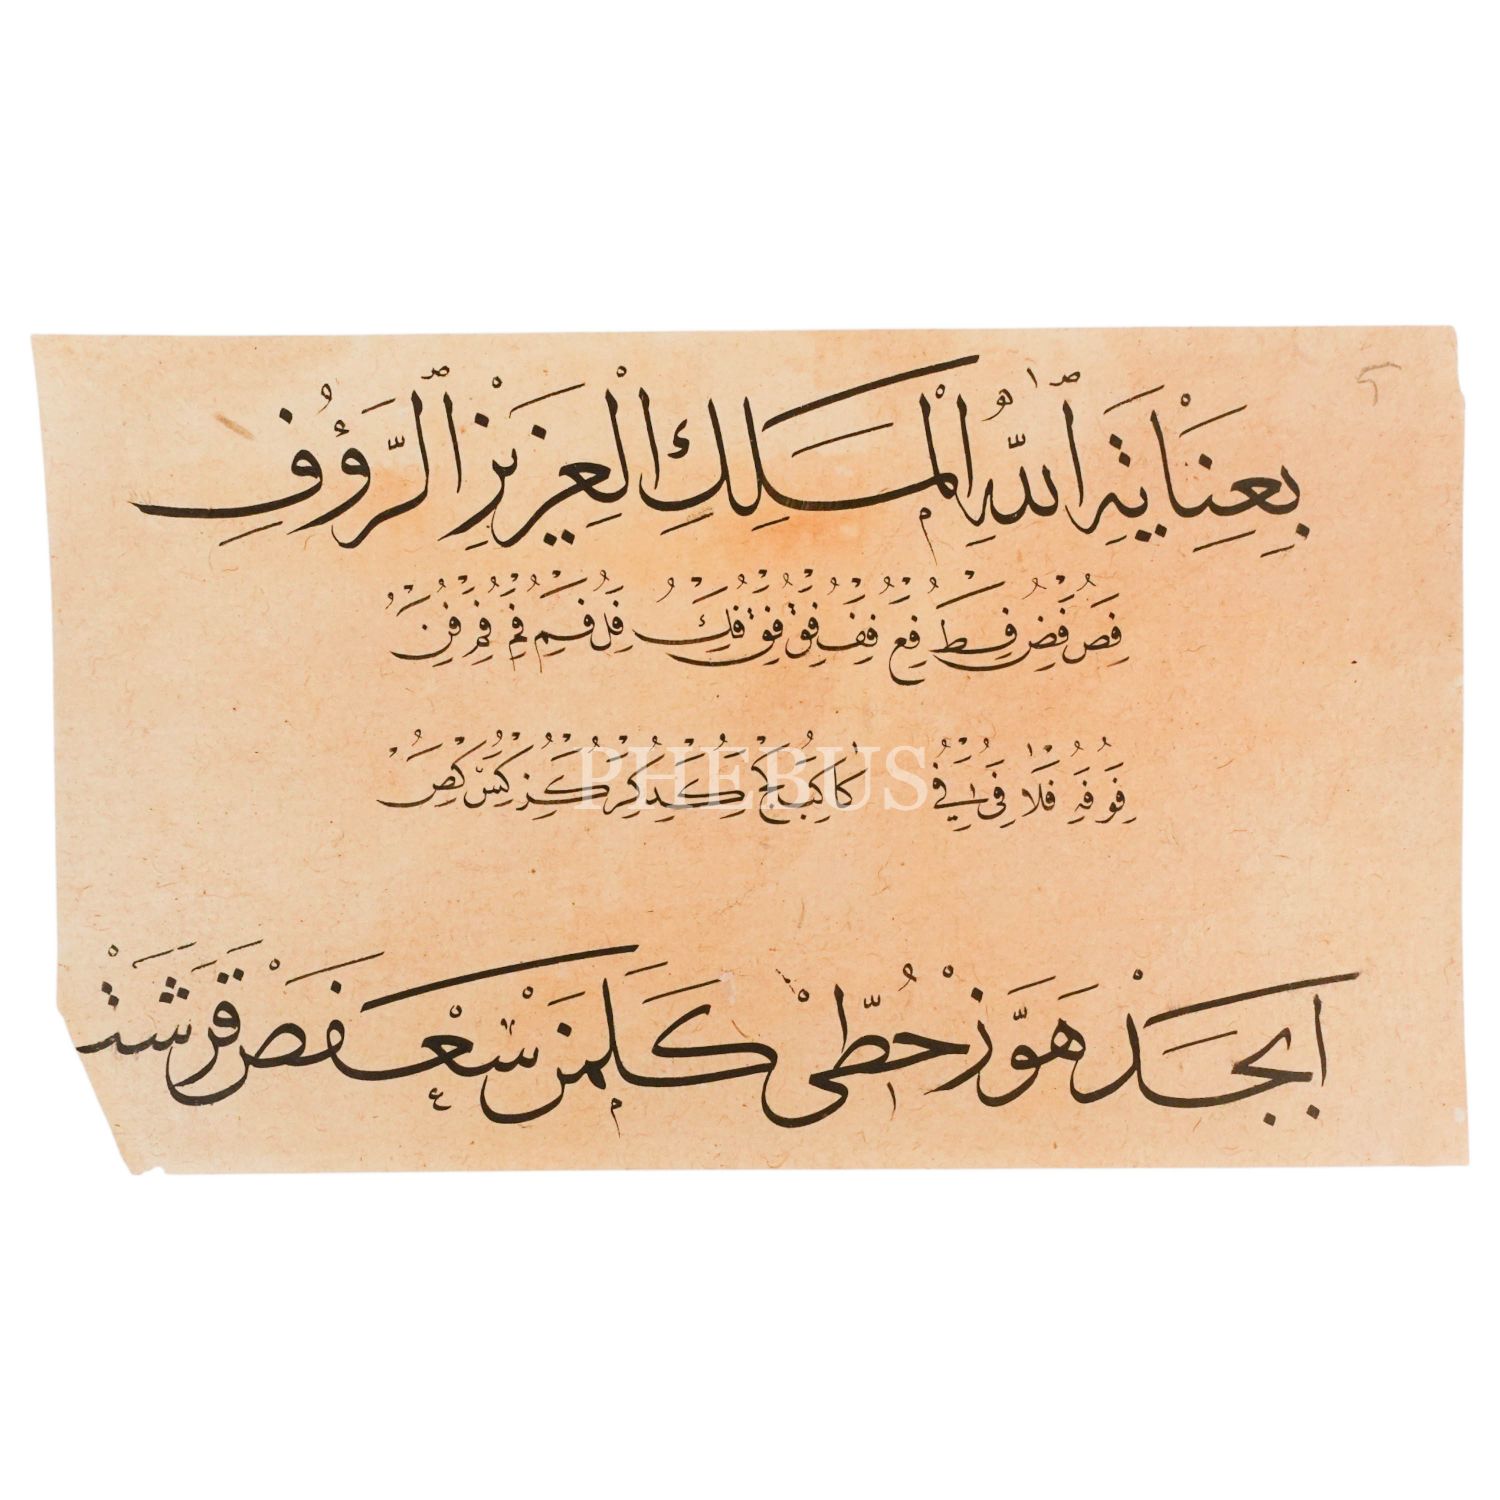 بِعِنَايَةِ ٱللّٰهِ الْمَلِكِ الْعَزِيْزِ ٱلرَّؤُفِ
فص فض فط فع فف فق فق فك فل فم فم فم فن
فو فه فلا فى فى فى كا كب كج كد كر كز كس كص
PHEBUS
ابجَدْ هَوَّزْ حُطِّىْ كَلَمَنْ سَعْفَصْ قَرَشَتْ